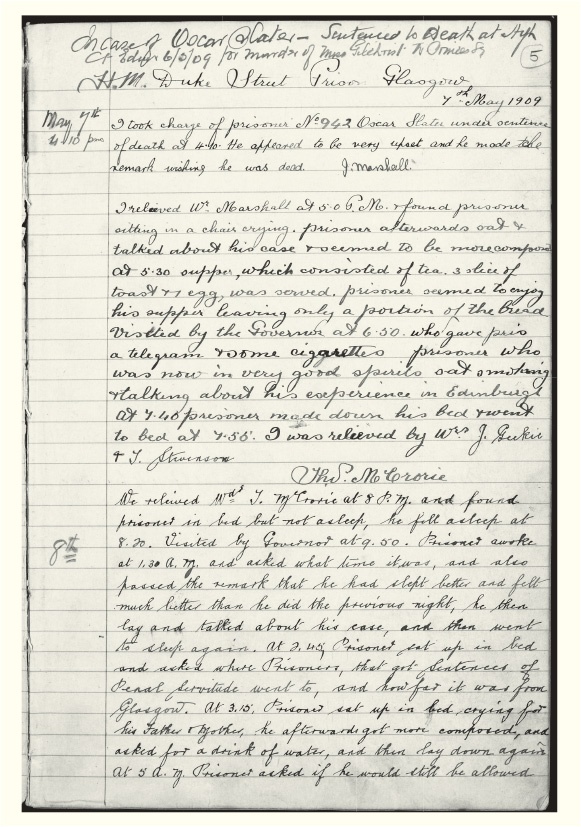 In case of Oscar Slater – Sentenced to Death at High
Ct Edinr 6/5/09 for murder of Miss Gilchrist
5
H.M. Duke Street Prison Glasgow
7th May 1909
May 7th
4.10 pm
I took charge of prisoner No 942 Oscar Slater under sentence
of death at 4.10. He appeared to be very upset and he made the
remark wishing he was dead. J. Marshall.
I relieved Wr. Marshall at 5.0 P.M. & found prisoner
sitting in a chair crying. prisoner afterwards sat &
talked about his case & seemed to be more compos
at 5.30 supper, which consisted of tea. 3 slice of
toast & 1 egg, was served. prisoner seemed to enjoy
his supper leaving only a portion of the bread
Visited by the Governor at 6.50. who gave pris
a telegram & some cigarettes prisoner who
was now in very good spirits sat smoking
& talking about his experience in Edinburgh
at 7.40 prisoner made down his bed & went
to bed at 7.55. I was relieved by Wrs J. Geikie
& T. Stevenson
Thos. McCrorie
We relieved Wdr T. McCrorie at 8 P.M. and found
prisoner in bed but not asleep, he fell asleep at
8.20. Visited by Governor at 9.50. Prisoner awoke
8th
at 1.30 A.M. and asked what time it was, and also
passed the remark that he had slept better and felt
much better than he did the previous night, he then
lay and talked about his case, and then went
to sleep again. At 2.45 Prisoner sat up in bed
and asked where Prisoners, that got Sentences of
Penal Servitude went to, and how far it was from
Glasgow. At 3.15, Prisoner sat up in bed crying for
his Father & Mother, he afterwards got more composed, and
asked for a drink of water, and then lay down again
At 5 A.M. Prisoner asked if he would still be allowed